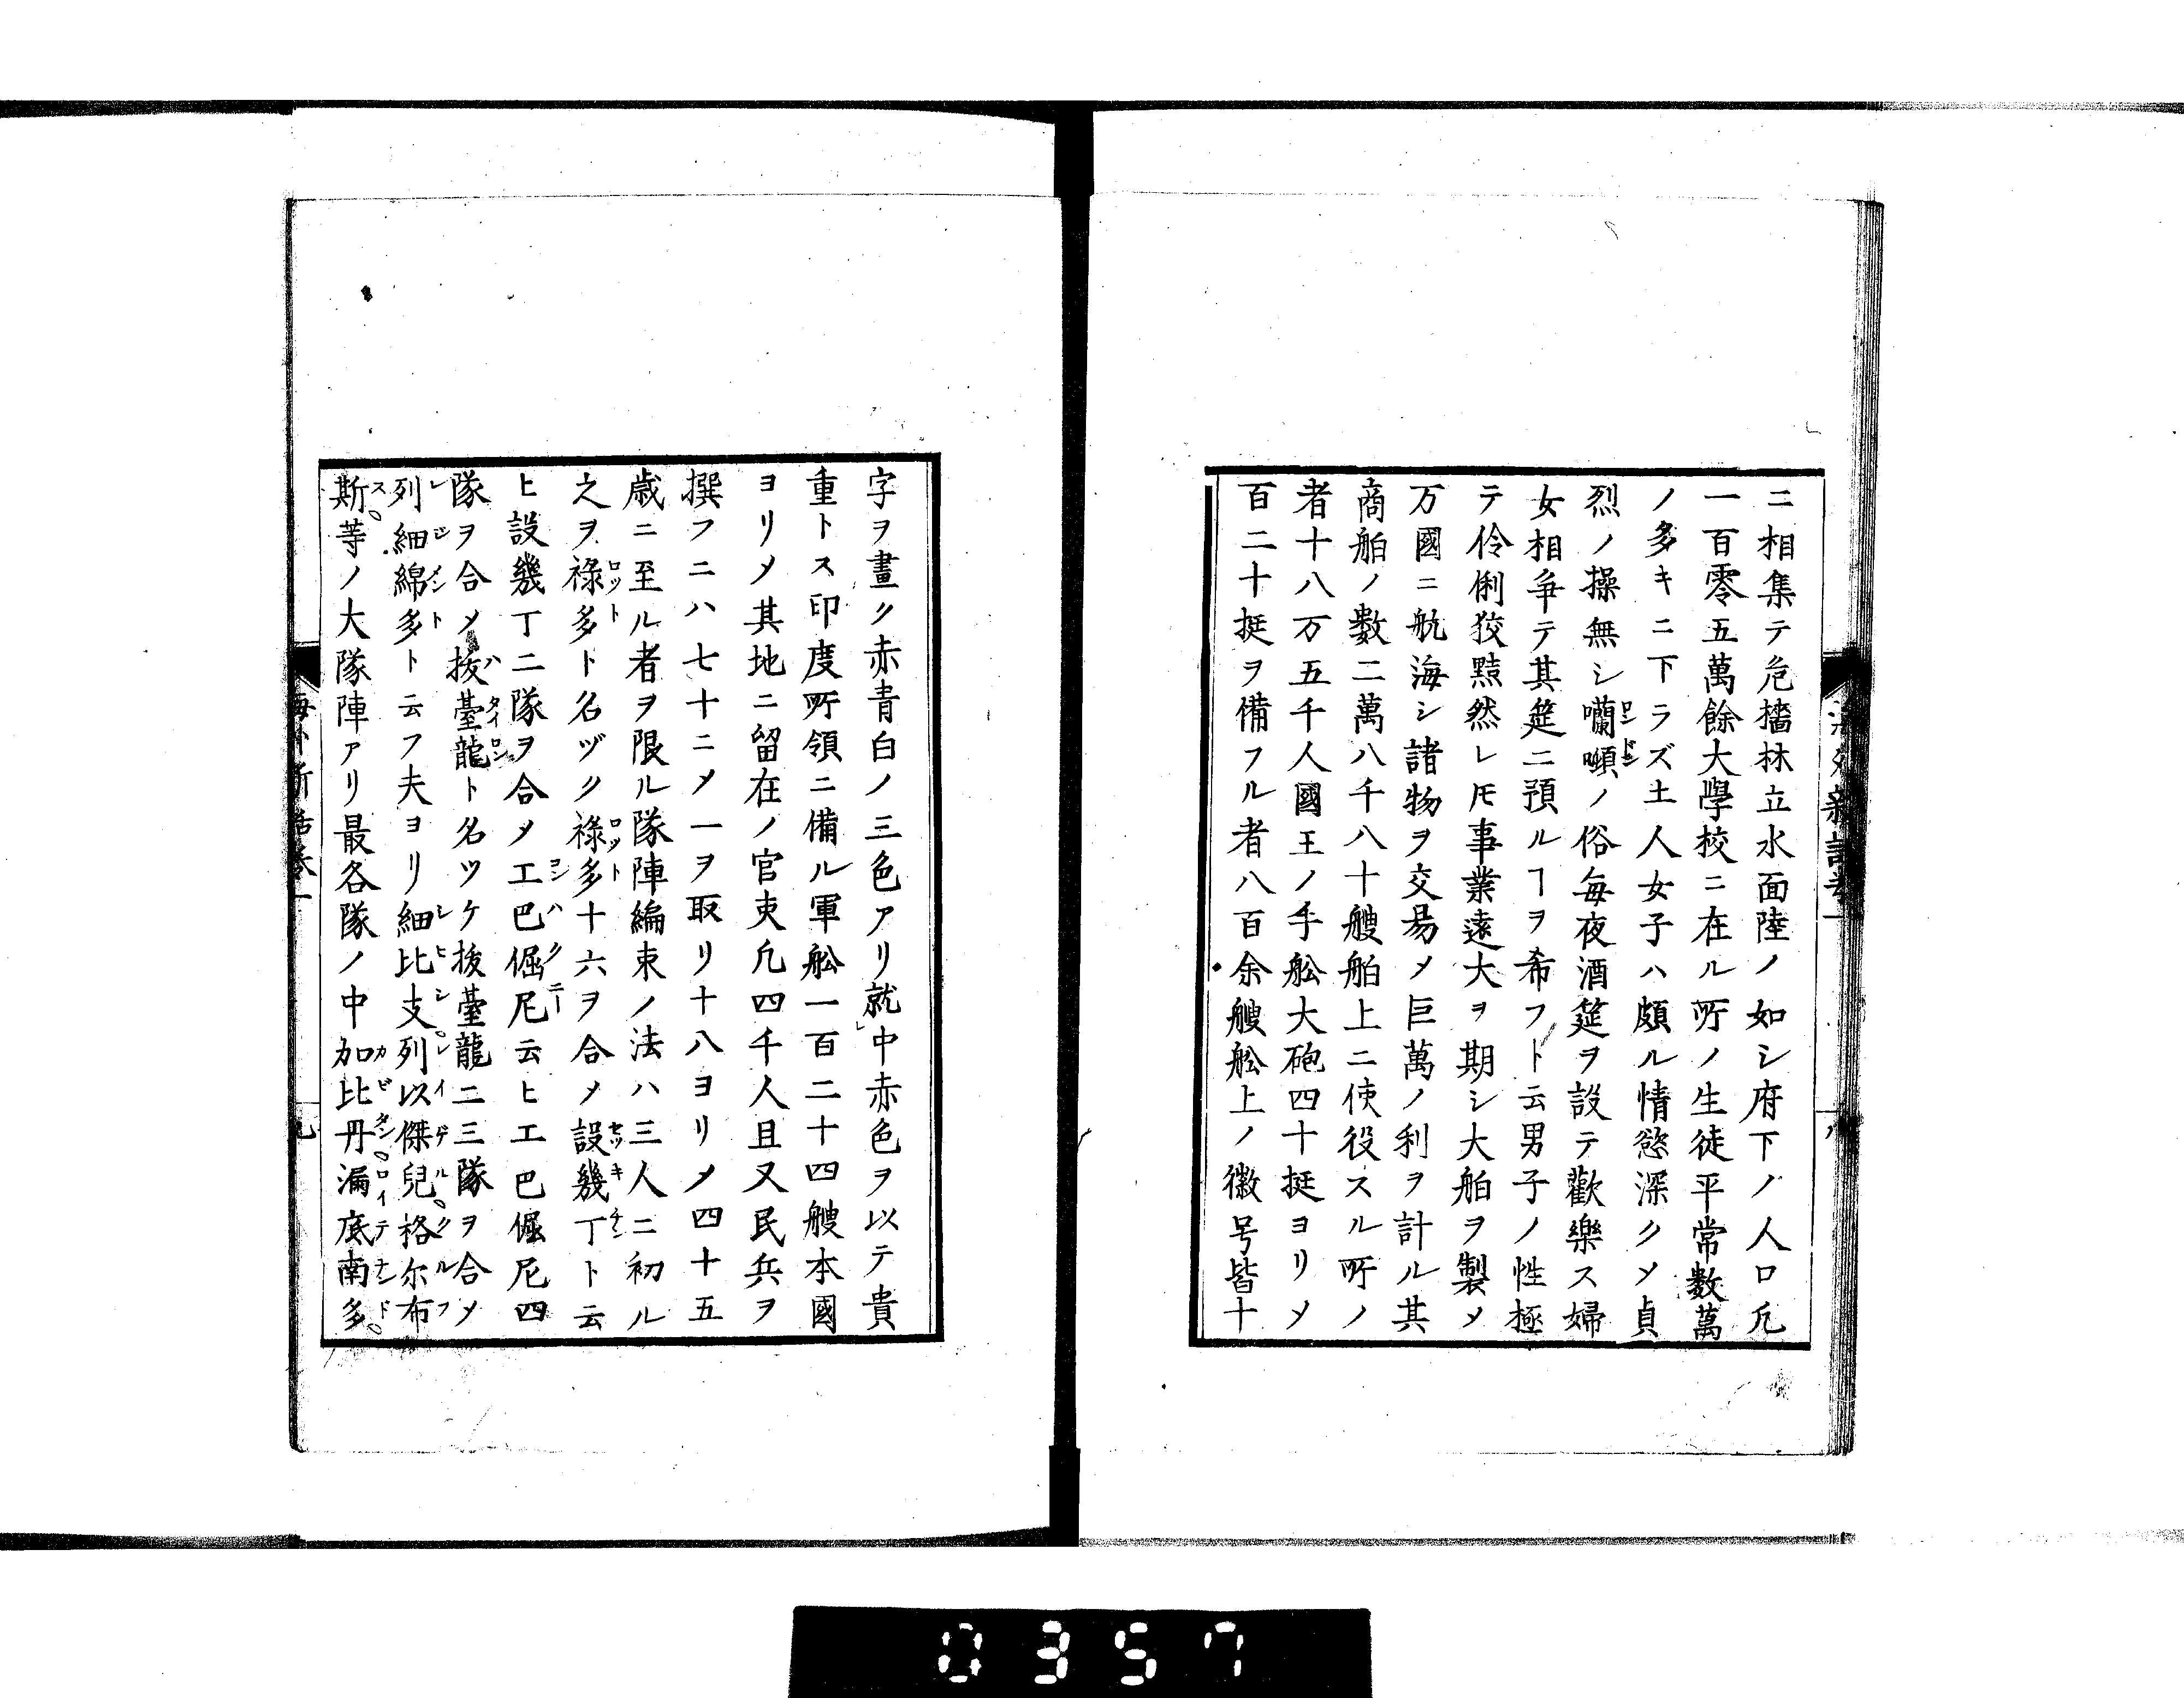 ニ相集テ危檣林立水面陸ノ如シ府下ノ人口凢
一百零五萬餘大學校ニ在ル所ノ生徒平常數萬
ノ多キニ下ラズ土人女子ハ頗ル情慾深クメ貞
烈ノ操無シ囒噸ノ俗毎夜酒筵ヲ設テ歡樂ス婦
女相爭テ其筵ニ預ルヿヲ希フト云男子ノ性極
テ伶俐狡黠然レ𪜈事業遠大ヲ期シ大舶ヲ製メ
万國ニ航海シ諸物ヲ交易メ巨萬ノ利ヲ計ル其
商舶ノ數二萬八千八十艘舶上ニ使役スル所ノ
者十八万五千人國王ノ手舩大砲四十挺ヨリメ
百二十挺ヲ備フル者八百余艘舩上ノ徽号皆十
字ヲ畫ク赤青白ノ三色アリ就中赤色ヲ以テ貴
重トス印度所領ニ備ル軍舩一百二十四艘本國
ヨリメ其地ニ留在ノ官吏凢四千人且又民兵ヲ
撰フニハ七十ニメ一ヲ取リ十八ヨリメ四十五
歳ニ至ル者ヲ限ル隊陣編束ノ法ハ三人ニ初ル
之ヲ祿多ト名ヅク祿多十六ヲ合メ設幾丁ト云
ヒ設幾丁二隊ヲ合メ工巴倔尼云ヒ工巴倔尼四
隊ヲ合メ拔臺龍ト名ツケ拔臺龍二三隊ヲ合メ
列細綿多ト云フ夫ヨリ細比支列以傑兒格尓布
斯等ノ大隊陣アリ最各隊ノ中加比丹漏底南多
海外新話卷一
八
九
0357